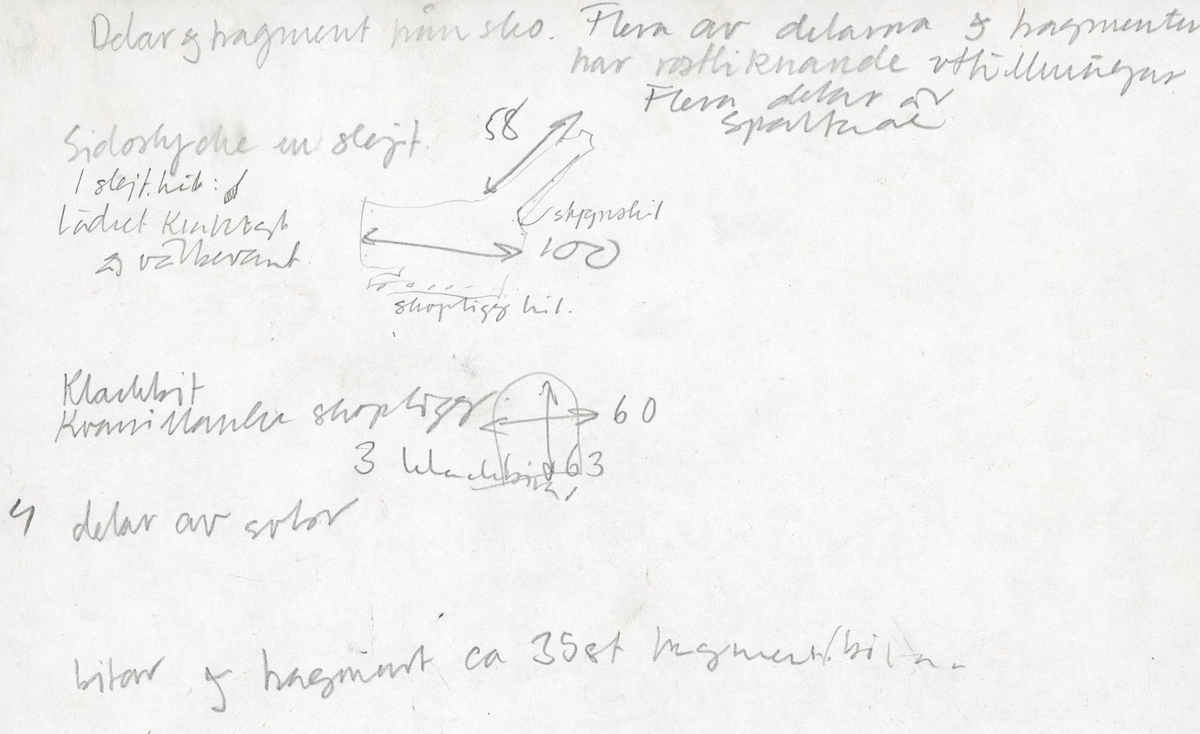 Delar & fragment från sko. Flera av delarna & fragmenten
har rostliknande utfällningar
Flera delar är
spaltade
Sidostycke en slejf.
58
1 slejf. hål:
Lädret kraftigt
& välbevarat.
stygnshål
100
skopligg hål.
Klackbit
Kvarsittande skopligg
60
3 klackbitar
63
4 delar av sulor
bitar & fragment ca 35st fragment/bitar.